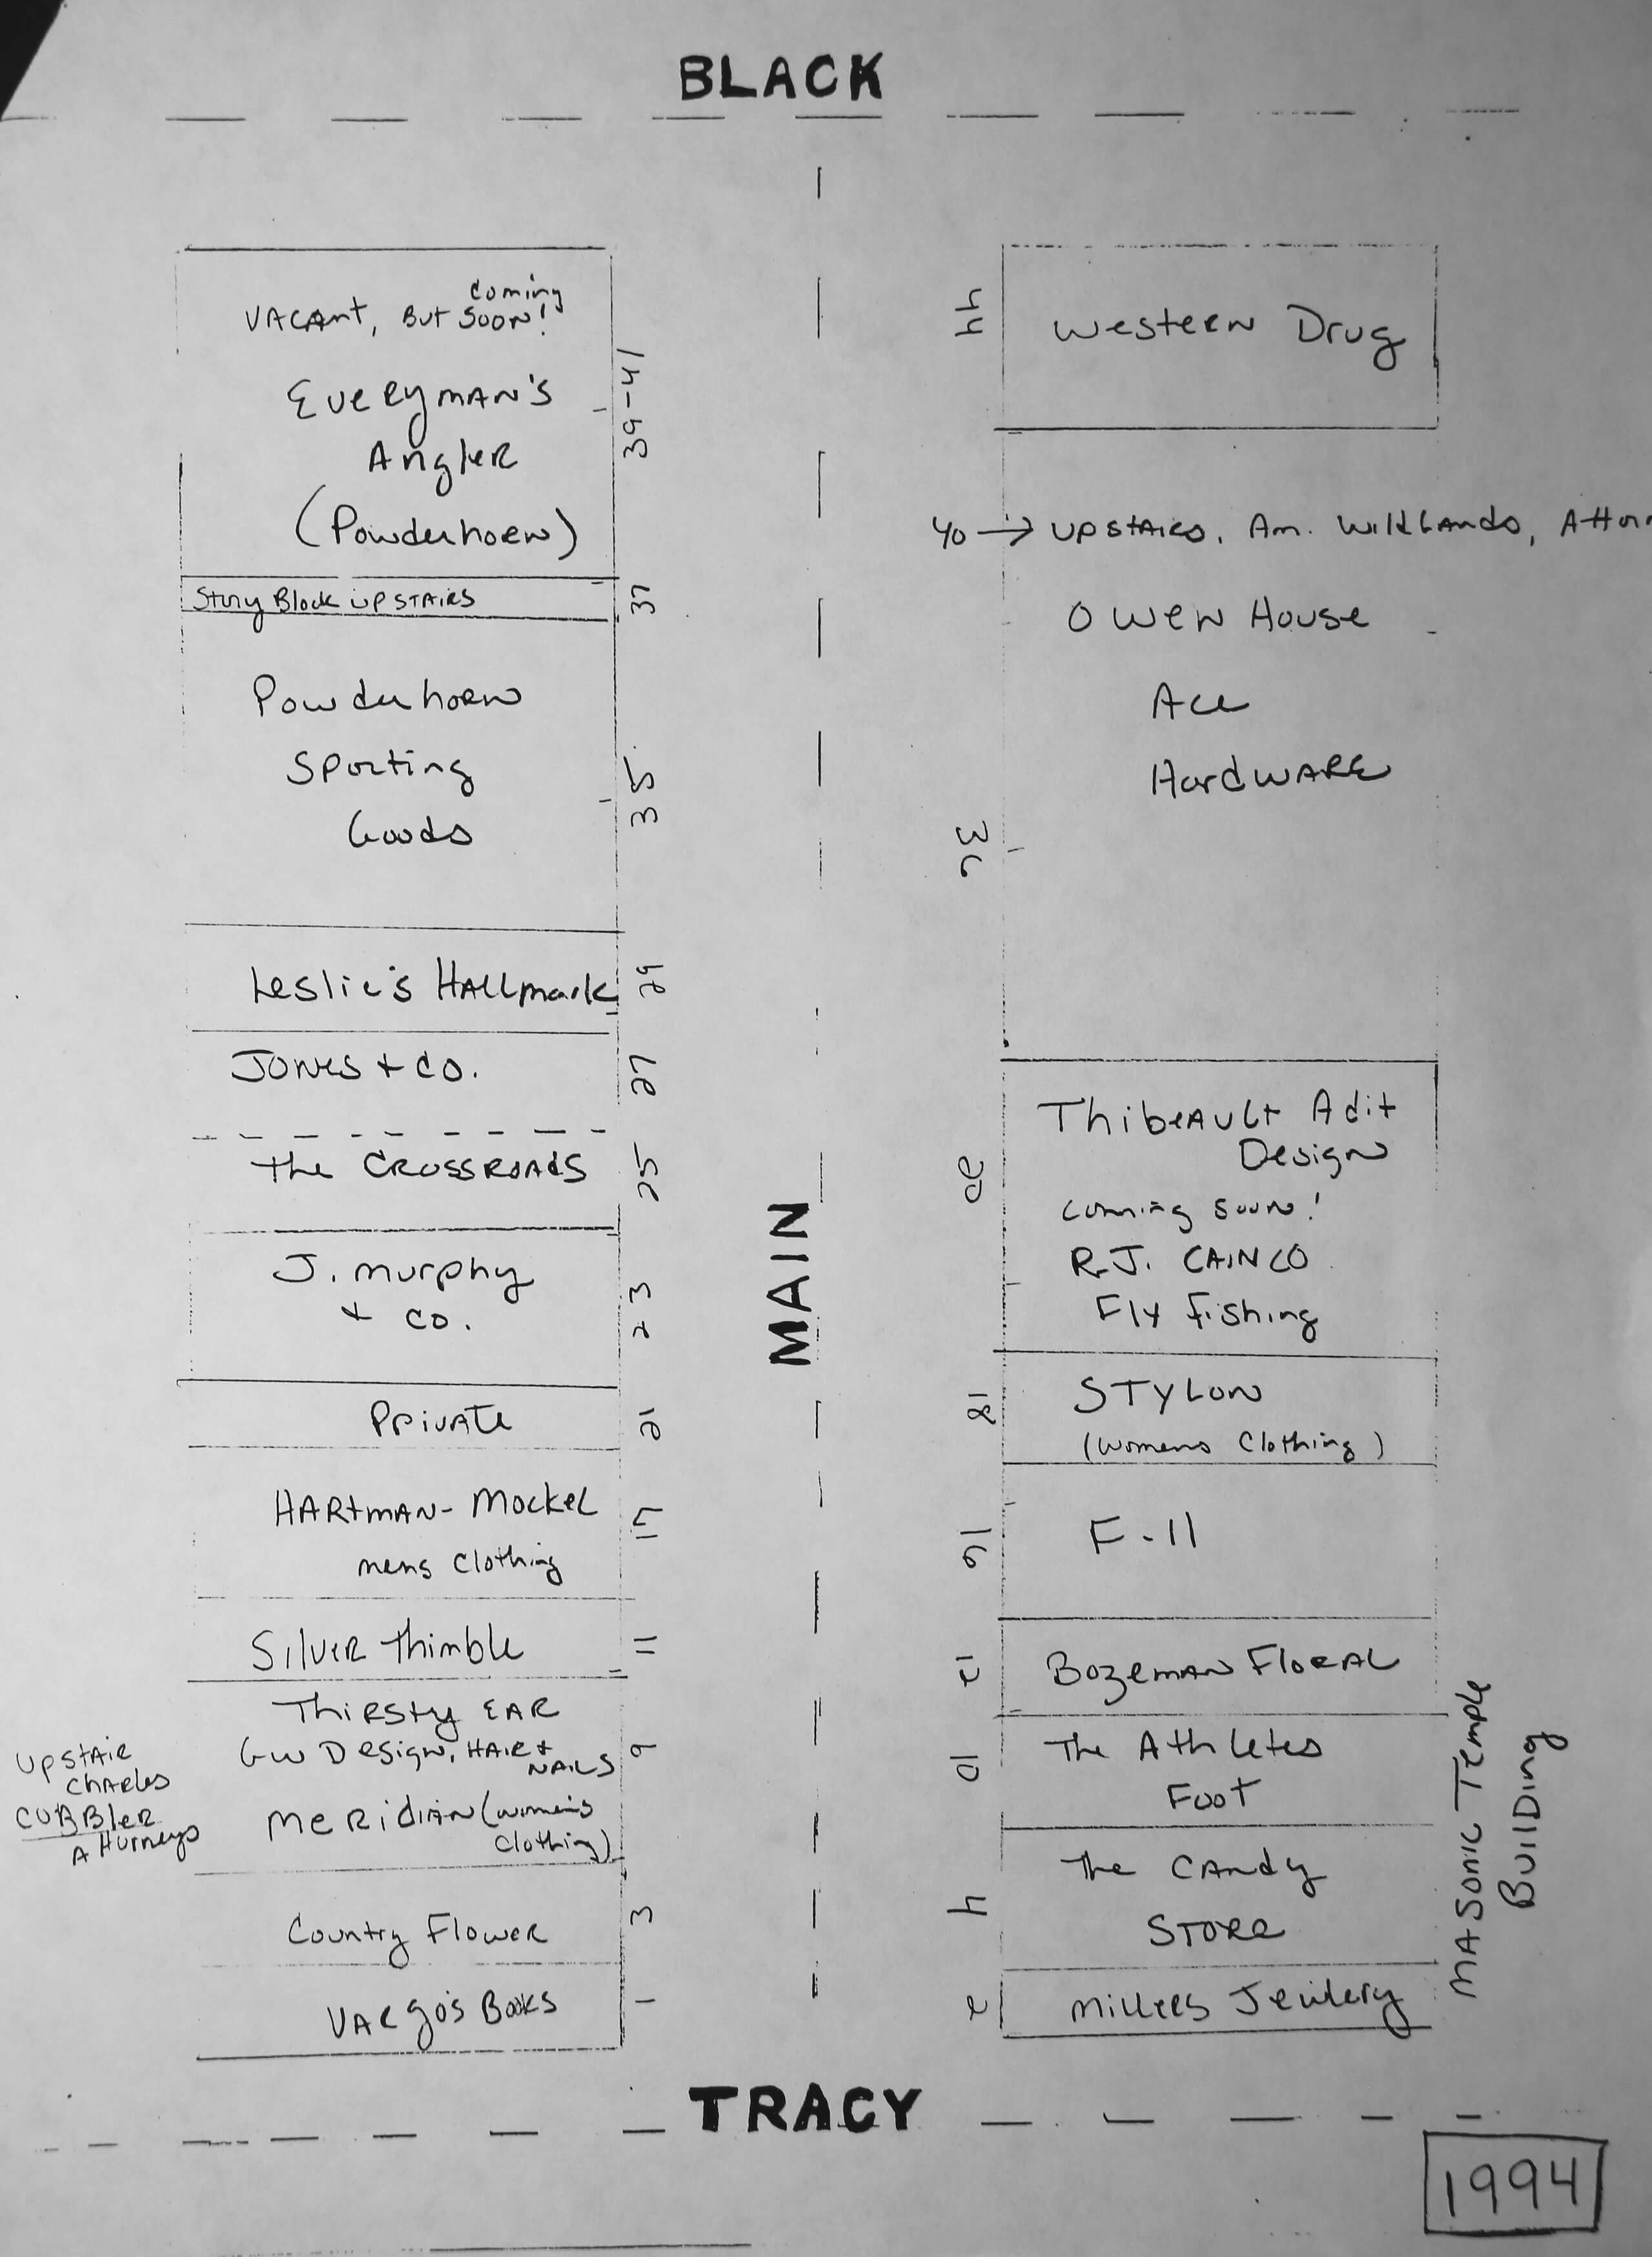 BLACK
VACANT, BUT COMING SOON!
EVERYMAN'S
ANGLER
(Powderhorn)
39-41
Story Block UPSTAIRS
37
Powderhorn
Sporting
Goods
35
Leslie's HALLmark
29
JONES + CO.
27
the CROSSROADS
25
J. Murphy
+ CO.
23
PRIVATE
21
HARTMAN- Mockel
mens Clothing
17
SILVER Thimble
11
Thirsty EAR
GW Design, HAIR +
NAILS
9
MERIDIAN (women's
Clothing)
UPSTAIR
CHARLES
CUBBLER
Atturneys
Country Flower
3
VARgo's Books
1
MAIN
44
Western Drug
40 → UPSTAIRS, Am. WildLands,
OWEN House
Ace
HardWARE
36
Thibeault Adit
Design
coming soon!
R.J. CAIN CO
Fly fishing
20
STYLON
(womens Clothing)
18
F-11
16
Bozeman Floral
12
The Athletes
Foot
10
The CANdy
STORE
4
Millers Jewlery
2
MASonic Temple
BuilDing
TRACY
1994